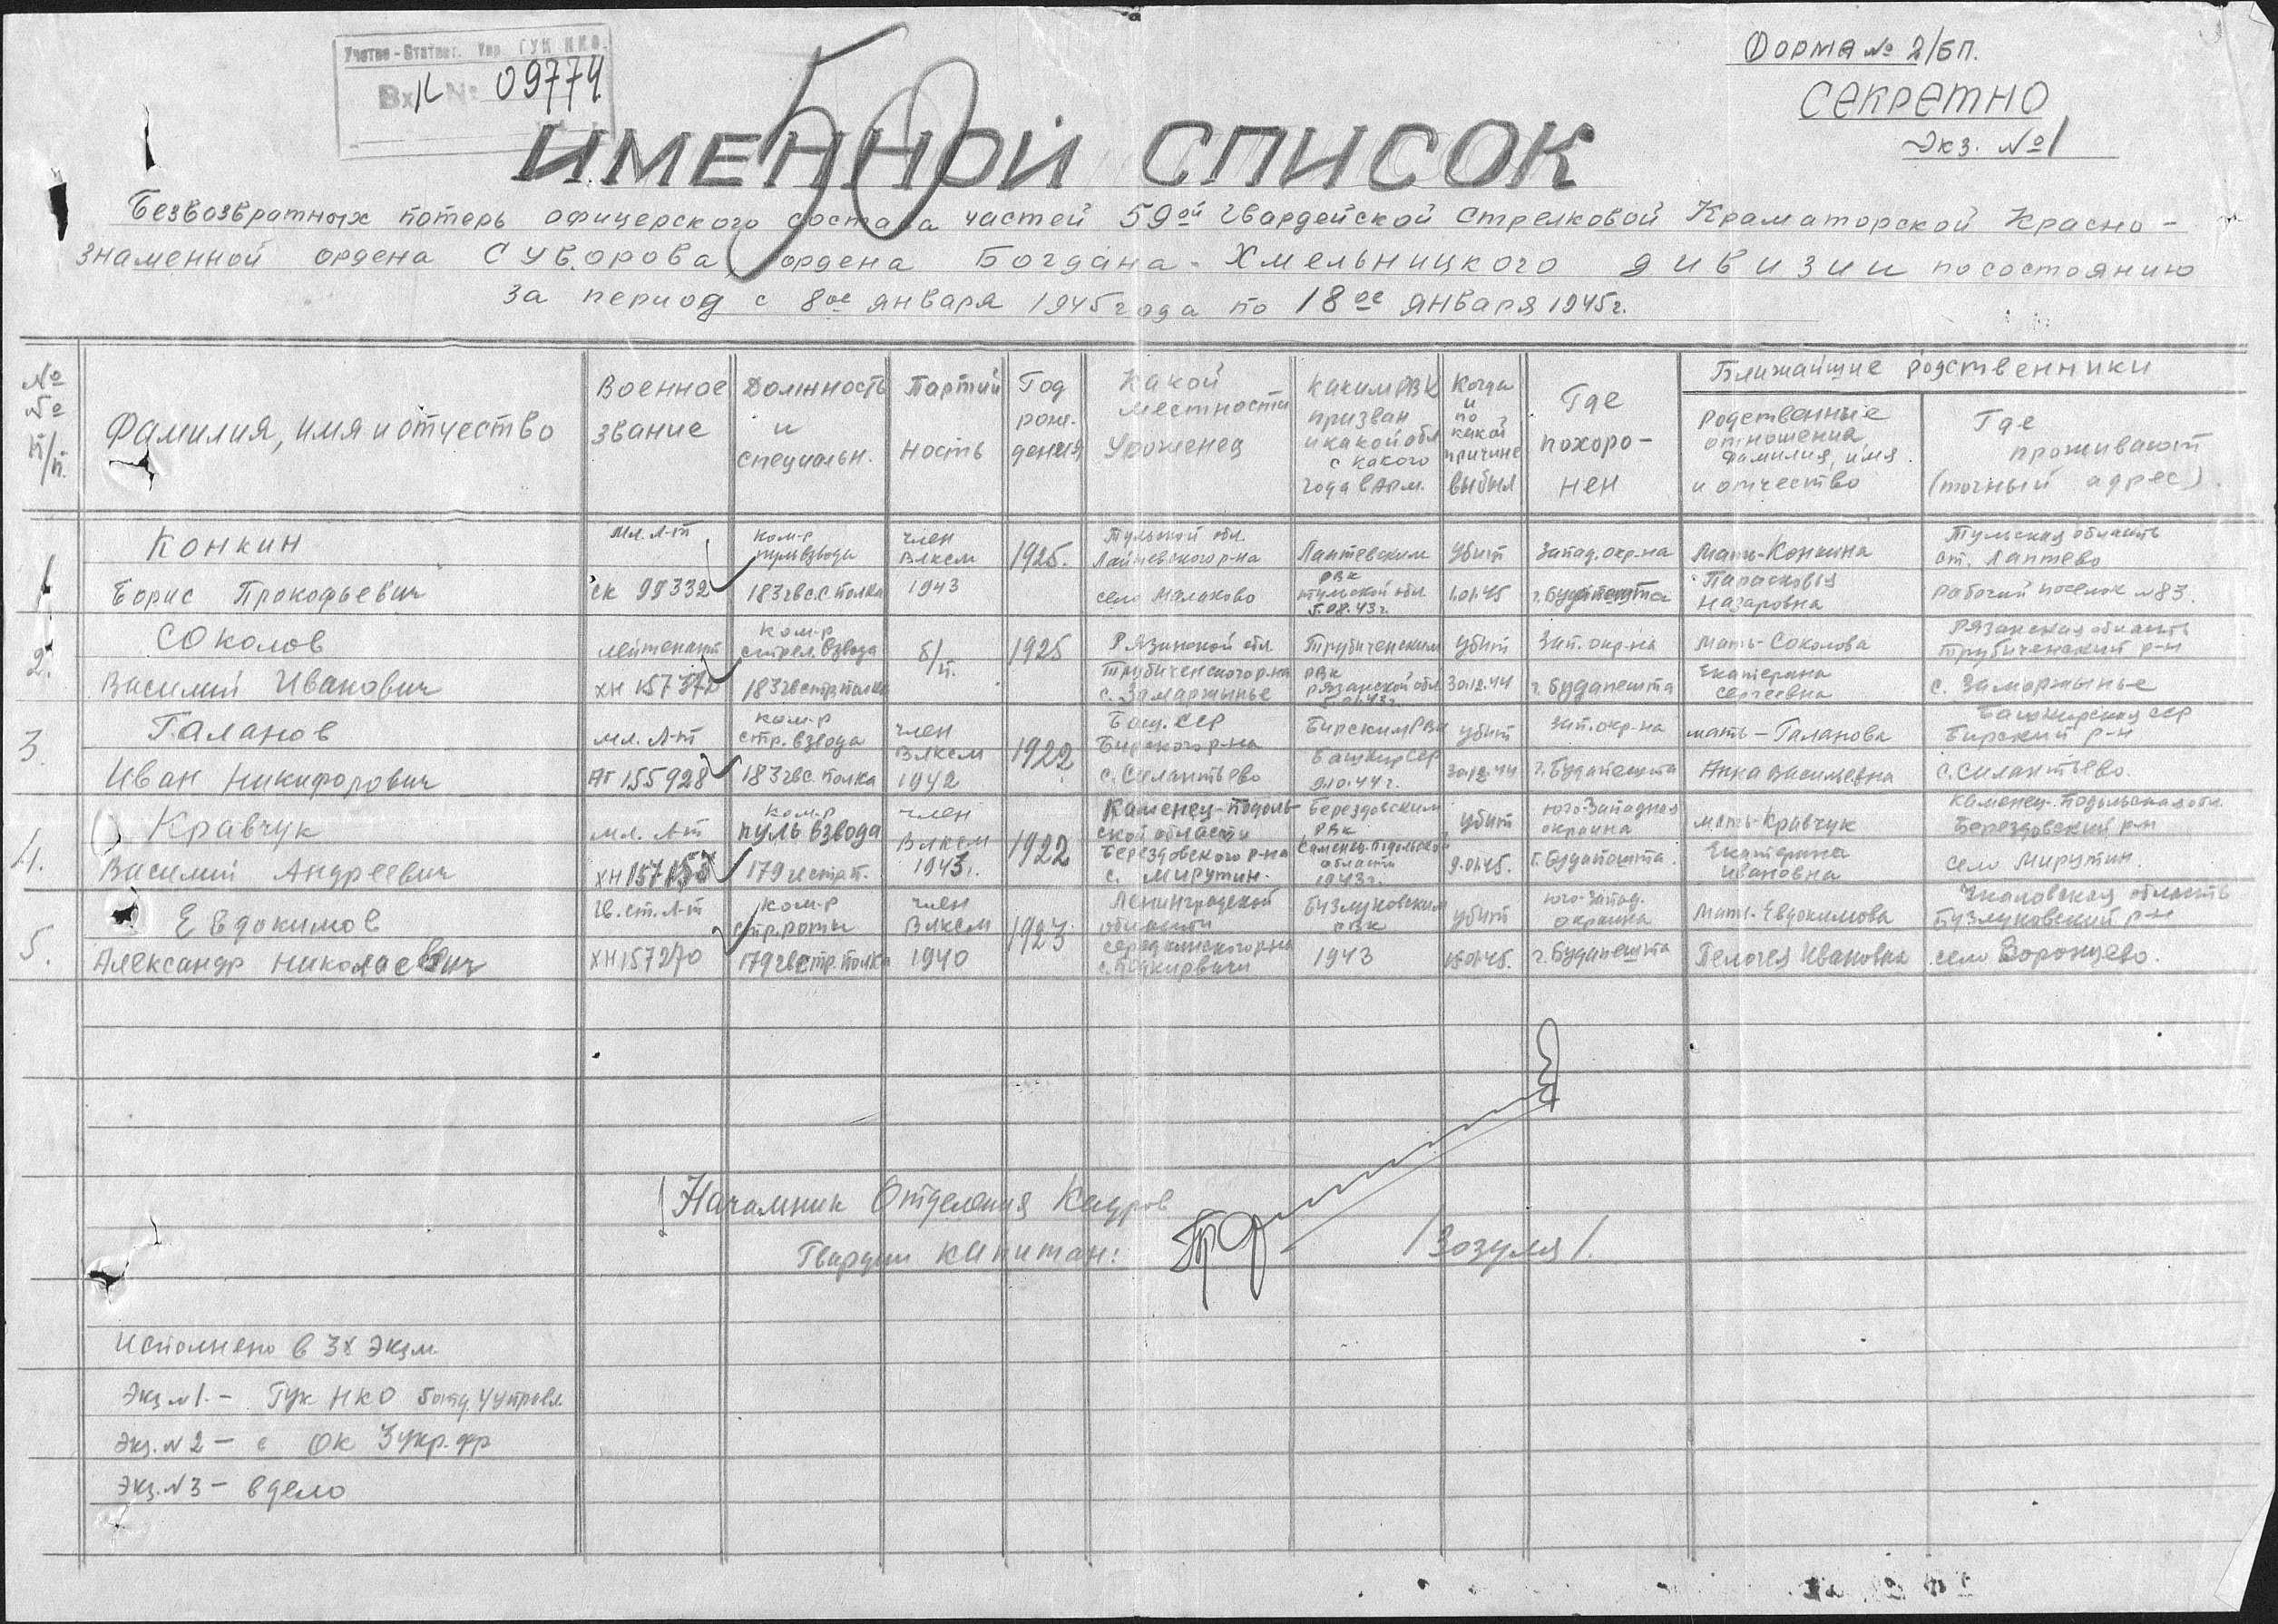 Форма № 2/БП.
СЕКРЕТНО
Экз. № 1
Учетно-Статист. Упр. ГУК НКО.
Вх № 09774
50
ИМЕННОЙ СПИСОК
Безвозвратных потерь офицерского состава частей 59ой Гвардейской Стрелковой Краматорской Красно-
знаменной ордена Суворова, ордена Богдана-Хмельницкого дивизии по состоянию
за период с 8ое января 1945 года по 18ое января 1945 г.
№№ п/п.
Фамилия, имя и отчество
Военное звание
Должность и специальн.
Партийность
Год рождения
Какой местности уроженец
Каким РВК призван и какой обл с какого года в Арм.
Когда и по какой причине выбыл
Где похоро-нен
Ближайшие родственники
Родственные отношения, фамилия, имя и отчество
Где проживают (точный адрес).
1 Конкин Борис Прокофьевич
мл. л-т ск 99332
ком-р пульвзвода 183 гв.с полка
член ВЛКСМ 1943
1925.
Тульской обл. Лаптевского р-на село Малаково
Лаптевским РВК Тульской обл. 5.08.43 г.
убит 1.01.45
Запад. окр-на г. Будапешта
Мать-Конкина Парасковья Назаровна
Тульская область ст. Лаптево рабочий поселок №83.
2. Соколов Василий Иванович
лейтенант ХН 157372
ком-р стрел. взвода 183 гв стр полка
б/п.
1925
Рязанской обл. с.
РВК Рязанской обл.
убит 30.12.44
Зап. окр-на г. Будапешта
мать-Соколова Екатерина Сергеевна
Рязанская область р-н с.
3. Галанов Иван Никифорович
мл. л-т АГ 155928
ком-р стр. взвода 183 гвс. полка
член ВЛКСМ 1942
1922
Баш. ССР Бирского р-на с. Силантьево
Бирским РВК Башкир ССР
убит 30.12.44
Зап. окр-на г. Будапешта
мать-Галанова Анна Васильевна
Башкирская ССР Бирский р-н с. Силантьево.
4. Кравчук Василий Андреевич
мл. л-т ХН 157153
ком-р пульвзвода 179 гв стр п.
член ВЛКСМ 1943 г.
1922
Каменец-Подольской области Берездовского р-на с. Мирутин.
Берездовским РВК Каменец-Подольской области 1943 г.
убит 9.01.45.
юго-западная окраина г. Будапешта.
мать-Кравчук Екатерина Ивановна
Каменец-Подольская обл. Берездовский р-н село Мирутин.
5. Евдокимов Александр Николаевич
гв. ст. л-т ХН 157270
ком-р стр. роты 179 гв стр. полка
член ВЛКСМ 1940
1923
Ленинградской области
Бузулуковским РВК 1943
убит
юго-запад. окраина г. Будапешта
Мать-Евдокимова Пелагея Ивановна
Чкаловская область Бузулуковский р-н село Воронцево.
Начальник Отделения Кадров
Гвардии капитан:
/Зозуля/.
Исполнено в 3х экзм.
Экз №1. - Гук НКО 5 отд. 4 управл.
Экз. №2 - ОК 3 укр. фр
Экз. №3 - в дело